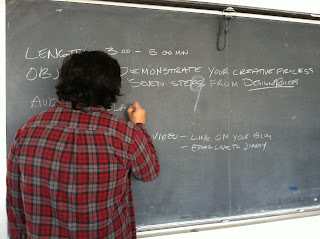 LENGTH 3:00 - 5:00 MIN
OBJ DEMONSTRATE YOUR CREATIVE PROCESS
SEVEN STEPS FROM DESIGN PROCESS
AUD LA
VIDEO - LINK ON YOUR BLOG
- EMAIL LINK TO JIMMY